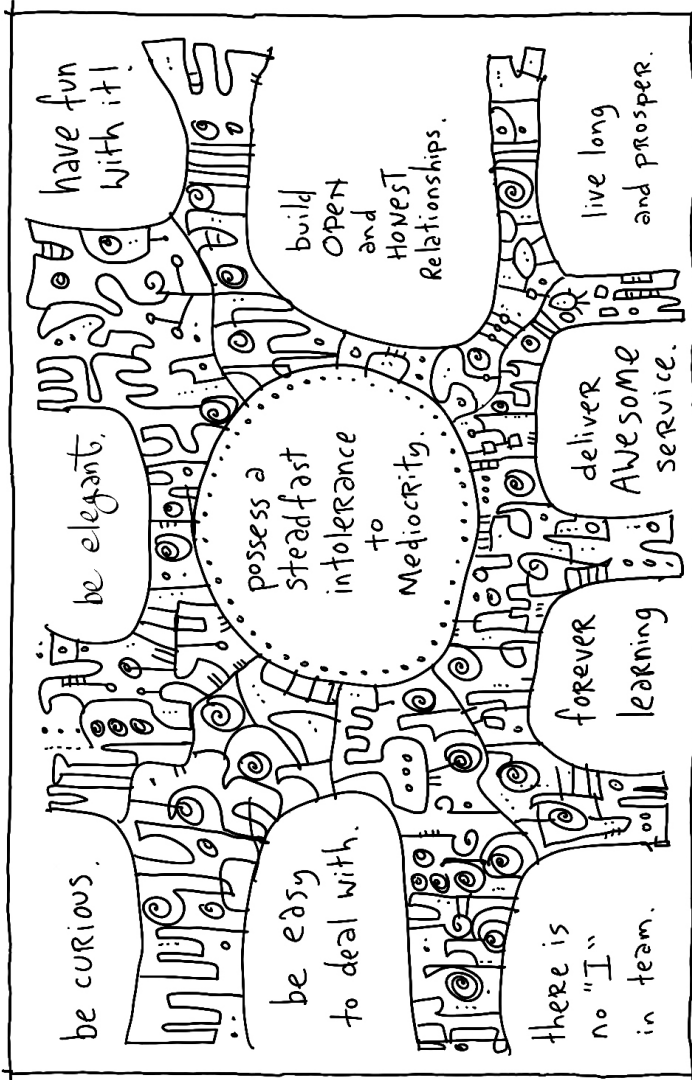 be curious.
be elegant.
have fun
with it!
be easy
to deal with.
possess a
steadfast
intolerance
to
Mediocrity.
build
OPEN
and
HONEST
Relationships.
there is
no "I"
in team.
forever
learning
deliver
AWESOME
service.
live long
and prosper.